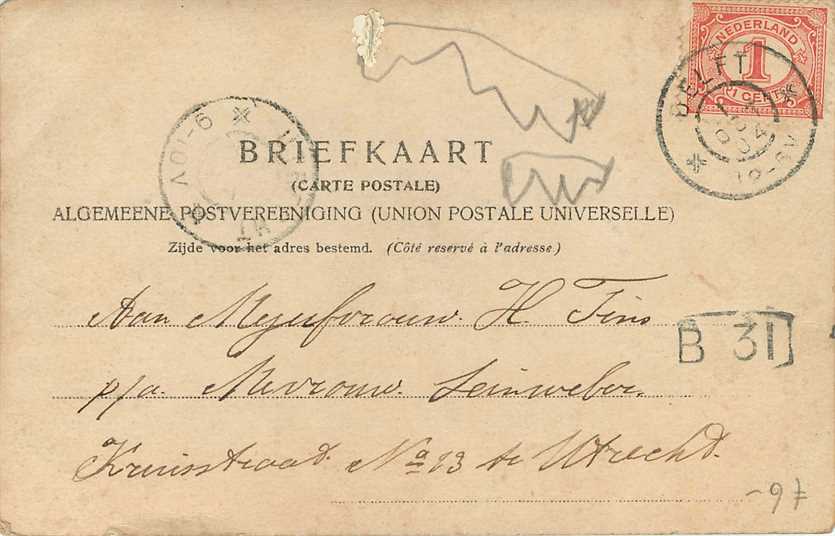 NEDERLAND
1
CENT
DELFT
04
9-10V
BRIEFKAART
(CARTE POSTALE)
ALGEMEENE POSTVEREENIGING (UNION POSTALE UNIVERSELLE)
Zijde voor het adres bestemd. (Côté reservé à l'adresse.)
Aan Mejufvrouw. H. Fins
p/a. Mevrouw. Leinweber.
B 31
Kruisstraat. No 13 te Utrecht.